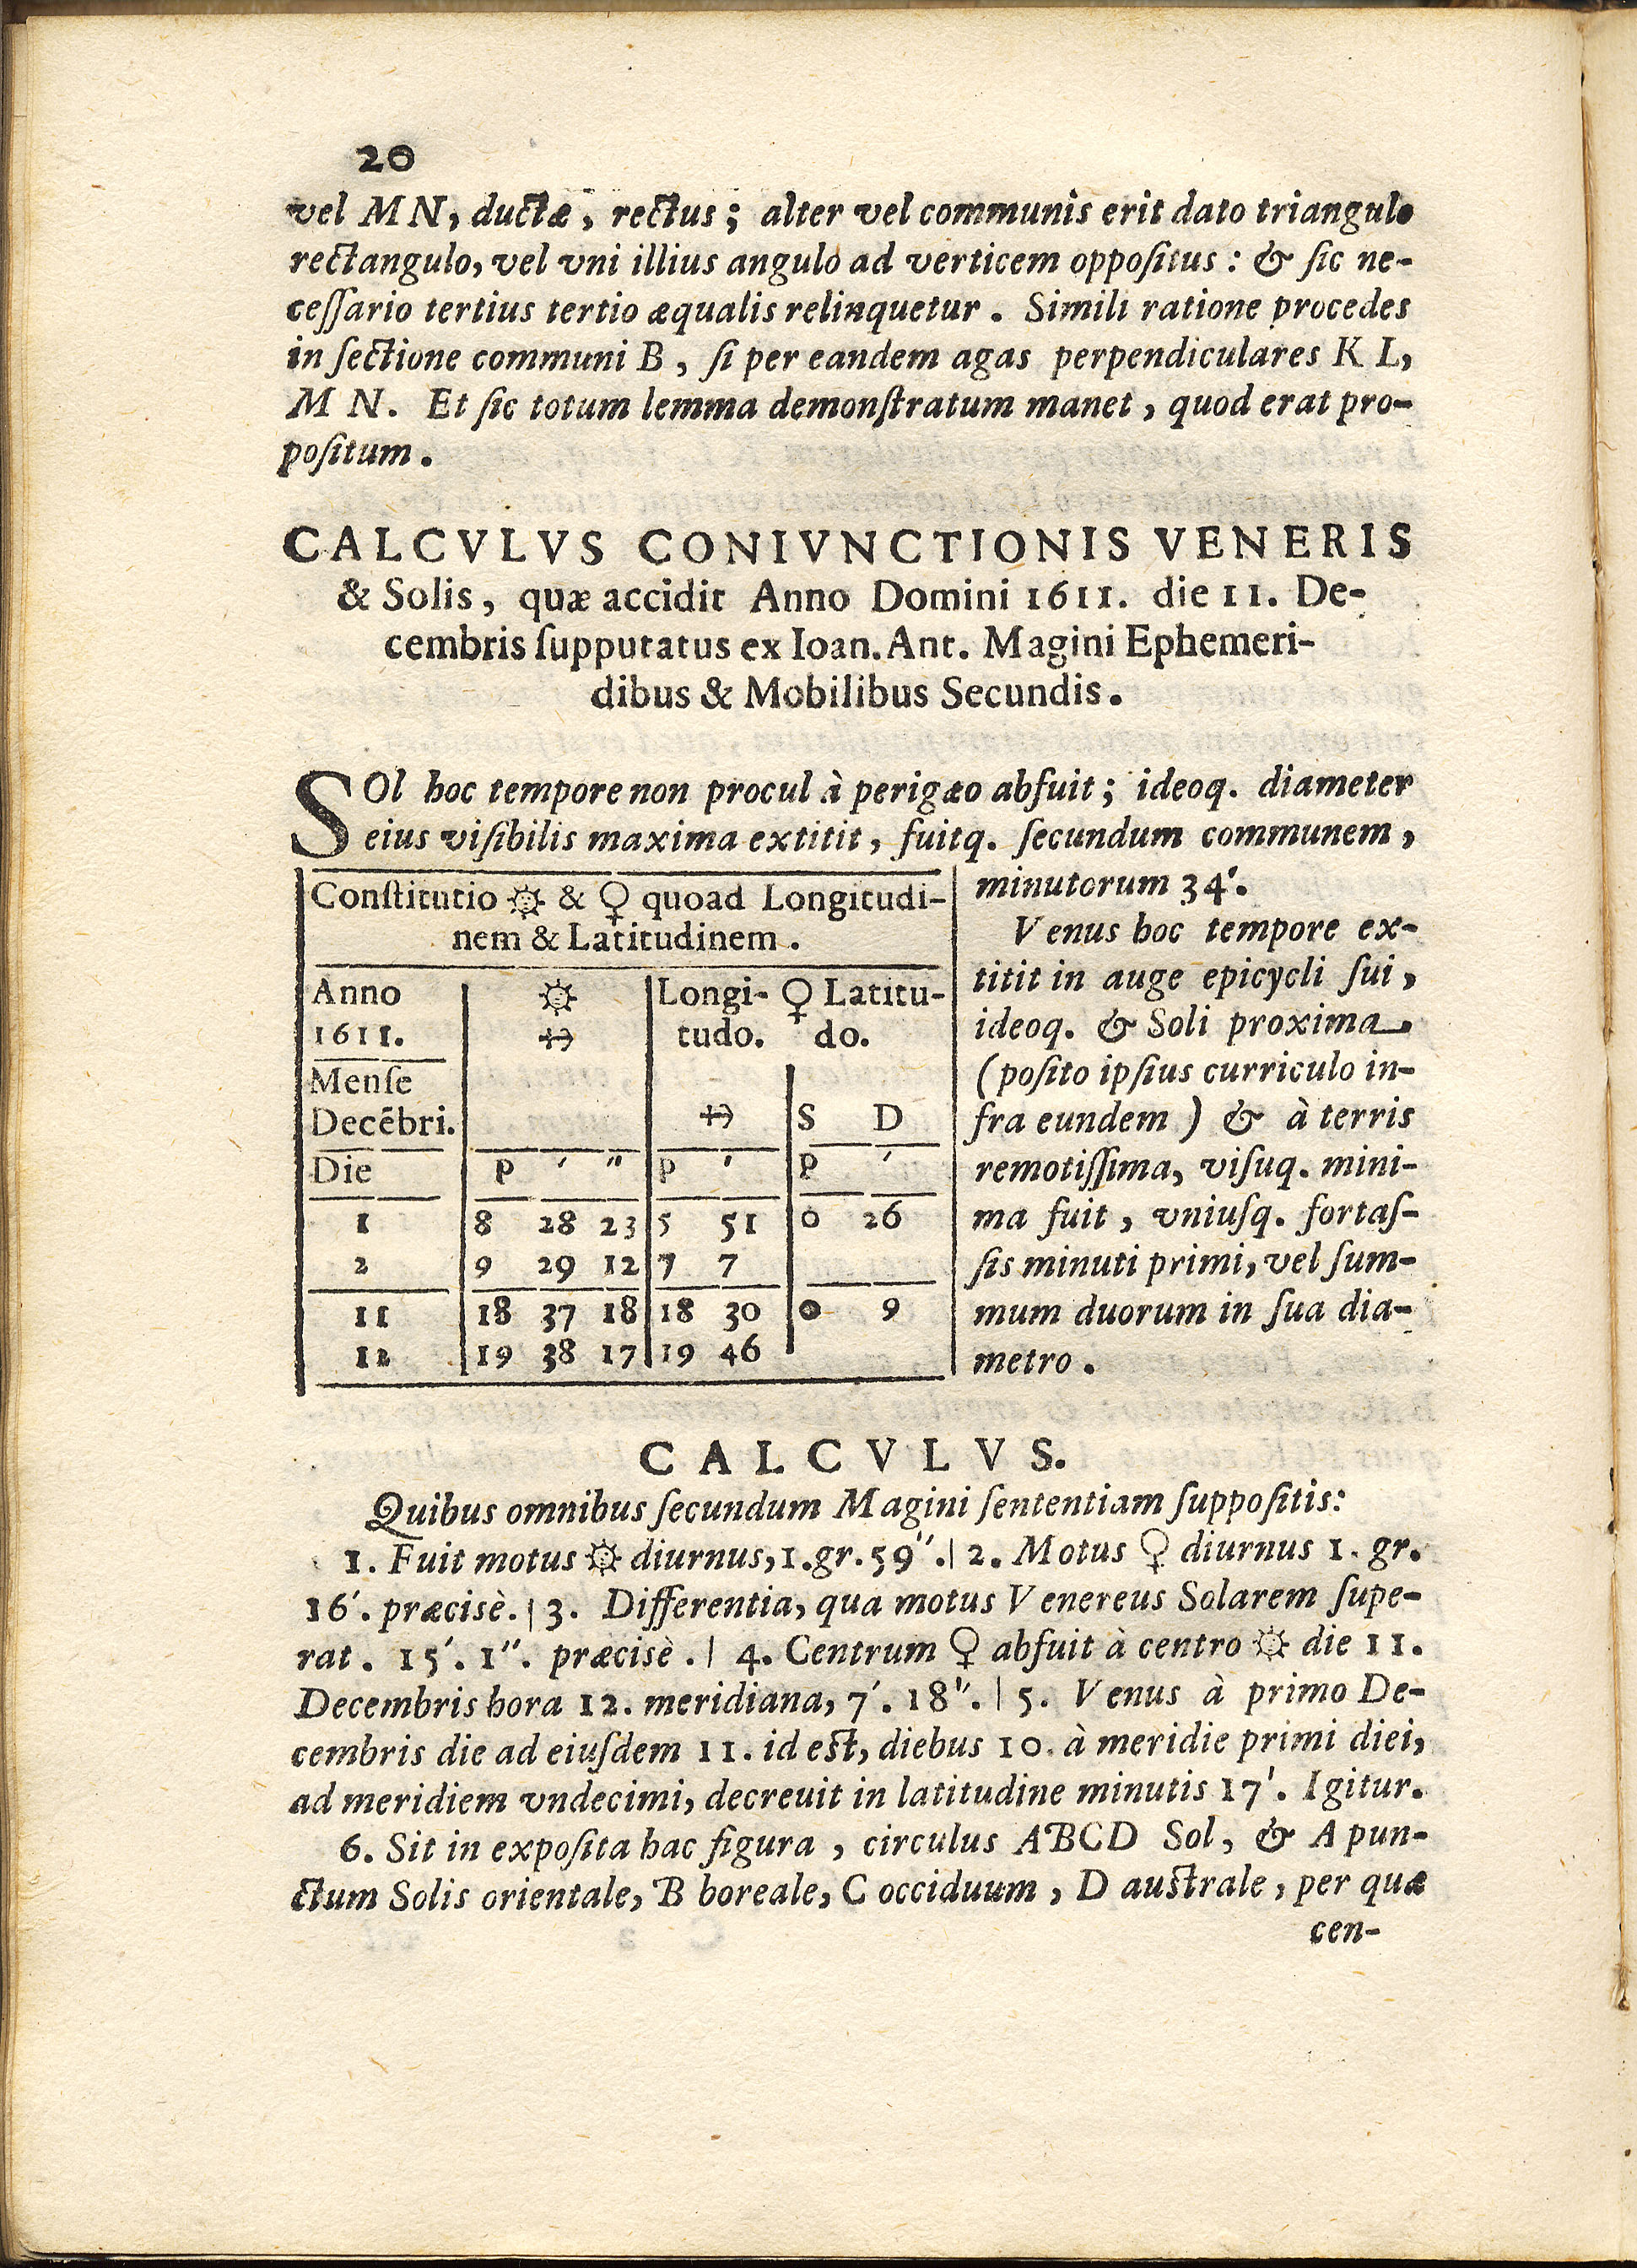 20
vel M N, ductæ, rectus; alter vel communis erit dato triangulo
rectangulo, vel vni illius angulo ad verticem oppoſitus: & ſic ne-
ceſſario tertius tertio æqualis relinquetur. Simili ratione procedes
in ſectione communi B, ſi per eandem agas perpendiculares K L,
M N. Et ſic totum lemma demonſtratum manet, quod erat pro-
poſitum.
CALCVLVS CONIVNCTIONIS VENERIS
& Solis, quæ accidit Anno Domini 1611. die 11. De-
cembris ſupputatus ex Ioan. Ant. Magini Ephemeri-
dibus & Mobilibus Secundis.
SOl hoc tempore non procul à perigæo abfuit; ideoq. diameter
eius viſibilis maxima extitit, fuitq. ſecundum communem,
minutorum 34′.
Venus hoc tempore ex-
titit in auge epicycli ſui,
ideoq. & Soli proxima
(poſito ipſius curriculo in-
fra eundem) & à terris
remotiſſima, viſuq. mini-
ma fuit, vniuſq. fortaſ-
ſis minuti primi, vel ſum-
mum duorum in ſua dia-
metro.
Conſtitutio ☼ & ♀ quoad Longitudi-
nem & Latitudinem.
Anno ☼ Longi- ♀ Latitu-
1611. ♐ tudo. do.
Menſe
Decēbri. ♐ S D
Die P ′ ″ P ′ P ′
1 8 28 23 5 51 0 26
2 9 29 12 7 7
11 18 37 18 18 30 0 9
12 19 38 17 19 46
CALCVLVS.
Quibus omnibus ſecundum Magini ſententiam ſuppoſitis:
1. Fuit motus ☼ diurnus, 1. gr. 59″. | 2. Motus ♀ diurnus 1. gr.
16′. præcisè. | 3. Differentia, qua motus Venereus Solarem ſupe-
rat. 15′. 1″. præcisè. | 4. Centrum ♀ abfuit à centro ☼ die 11.
Decembris hora 12. meridiana, 7′. 18″. | 5. Venus à primo De-
cembris die ad eiuſdem 11. id eſt, diebus 10. à meridie primi diei,
ad meridiem vndecimi, decreuit in latitudine minutis 17′. Igitur.
6. Sit in expoſita hac figura, circulus ABCD Sol, & A pun-
ctum Solis orientale, B boreale, C occiduum, D auſtrale, per quæ
cen-